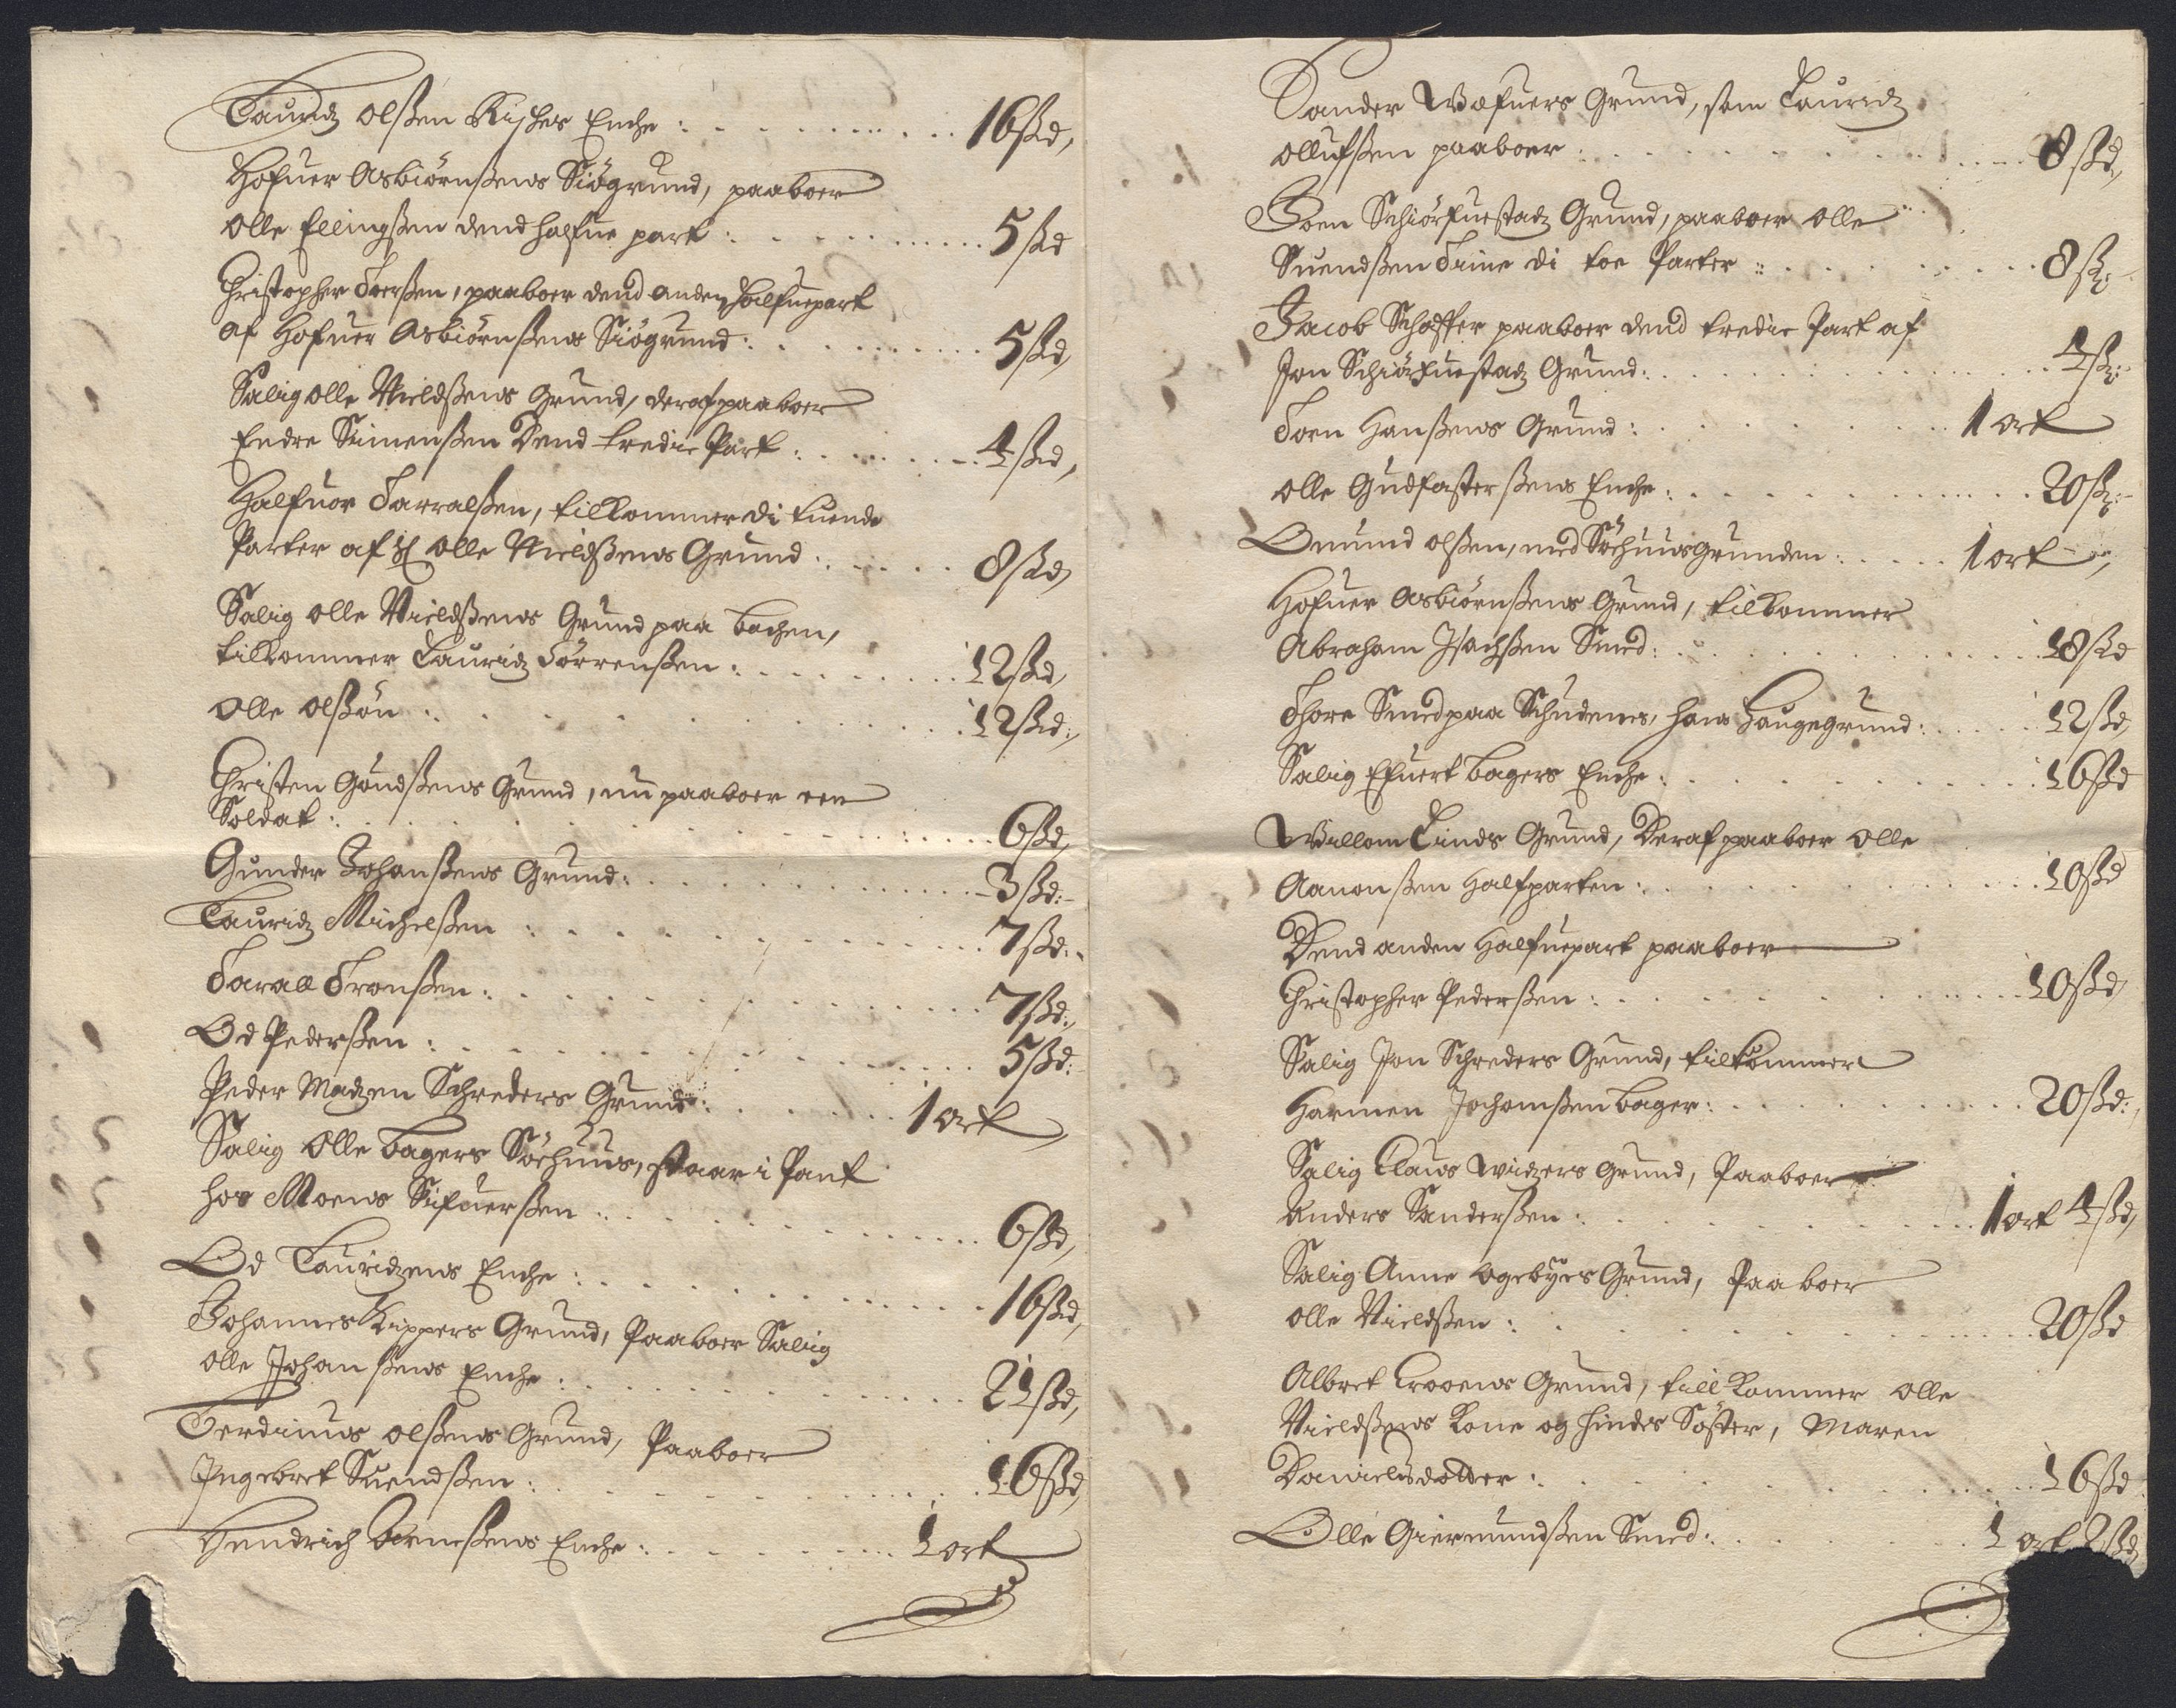 Lauridz Olßen Riches Enche: 16 ßd,
Hofuer Asbiörnßens Siögrund, paaboer
Olle Ellingßen dend halfue part: 5 ßd
Christopher Toerßen, paaboer dend anden halfuepart
af Hofuer Asbiörnßens Siögrund: 5 ßd,
Salig Olle Nieldßens Grund, deraf paaboer
Endre Simenßen Dend tredie Part: 4 ßd,
Halfuor Tarralßen, tilkommer di tuende
Parter af Sl Olle Nieldßens Grund: 8 ßd,
Salig Olle Nieldßens Grund paa bachen,
tilkommer Lauridz Törrenßen: 12 ßd,
Olle Olßön: 12 ßd:,
Christen Gundßens Grund, nu paaboer een
Soldat: 6 ßd,
Gunder Johanßens Grund: 3 ßd:-
Lauridz Michelßen: 7 ßd:,
Tarall Tronßen: 7 ßd:,
Od Pederßen: 5 ßd:
Peder Madzen Schreders Grund: 1 ort,
Salig Olle bagers Söehuus, staar i Pant
hos Moens Sifuerßen: 6 ßd,
Od Lauridzens Enche: 16 ßd,
Johannes Kippers Grund, Paaboer Salig
Olle Johanßens Enche: 21 ßd,
Ferdinus Olßens Grund, Paaboer
Ingebret Suendßen: 16 ßd,
Hendrich Arneßens Enche: 1 ort
Sander Wæfuers Grund, som Lauridz
Ollufßen paaboer: 8 ßd,
Joen Schiörfuestadz Grund, paaboer Olle
Suendßen Trine di toe Parter: 8 ß:
Jacob Schaffer paaboer dend tredie Part af
Jon Schiörfuestadz Grund: 4 ß:-
Toen Hanßens Grund: 1 ort
Olle Gudfasterßens Enche: 20 ß:-
Omund Olßen, med Söehuusgrunden: 1 ort,
Hofuer Asbiörnßens Grund, tilkommer
Abraham Isachßen Smed: 18 ßd
Thore Smed paa Schudenes, hans Haugegrund: 12 ßd,
Salig Efuert bagers Enche: 16 ßd
Willom Linds Grund, Deraf paaboer Olle
Aanonßen Halfparten: 10 ßd
Dend anden Halfuepart paaboer
Christopher Pederßen: 10 ßd,
Salig Jon Schreders Grund, tilkommer
Harmen Jochomßen bager: 20 ßd:,
Salig Claus Widzers Grund, Paaboer
Anders Sanderßen: 1 ort 4 ßd,
Salig Anne Ogebyes Grund, Paaboer
Olle Nieldßen: 20 ßd
Albret Crooens Grund, till kommer Olle
Nieldßens Kone og hindes Söster, Maren
Danielsdotter: 16 ßd
Olle Giermundßen Smed: 1 ort 2 ßd,